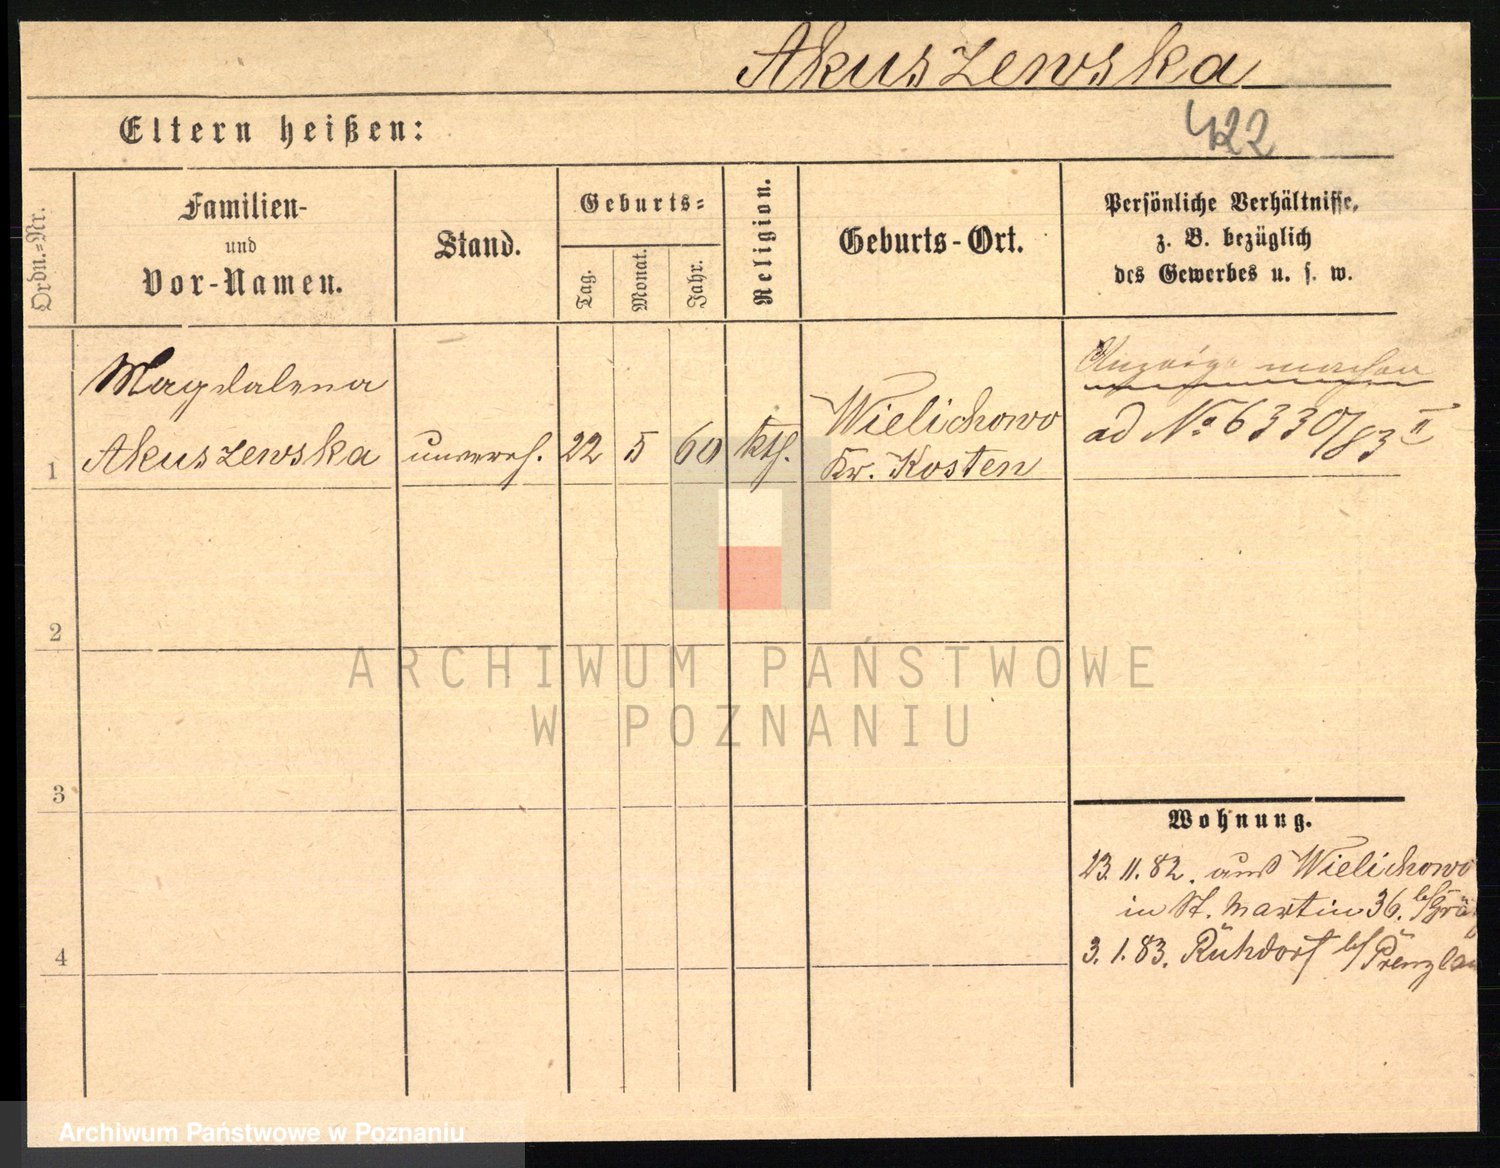 Akuszewska
422
Eltern heißen:
Ordn.-Nr.
Familien-
und
Vor-Namen.
Stand.
Geburts-
Tag.
Monat.
Jahr.
Religion.
Geburts-Ort.
Persönliche Verhältnisse,
z. B. bezüglich
des Gewerbes u. s. w.
1
Magdalena
Akuszewska
unvereh.
22
5
60
kth.
Wielichowo
Kr. Kosten
Anzeige machen
ad No 6330/83 II
2
3
4
Wohnung.
23. 11. 82. aus Wielichowo
in St. Martin 36. b/Grä
3. 1. 83. Ruhdorf b/Prenzlau
ARCHIWUM PAŃSTWOWE
W POZNANIU
Archiwum Państwowe w Poznaniu